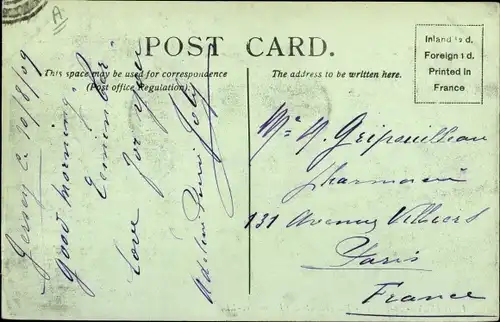 A
POST CARD.
This space may be used for correspondence
(Post office Regulation).
The address to be written here.
Inland ½ d.
Foreign 1 d.
Printed in
France
Jersey le 10/8/09
Good morning
love for you
Mr A. Gripouilleau
pharmacien
131 Avenue Villiers
Paris
France